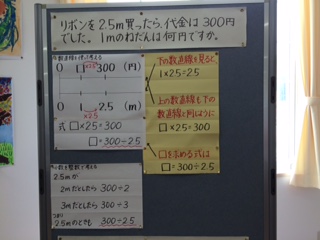 リボンを2.5m買ったら、代金は300円
でした。1mのねだんは何円ですか。
数直線を使って考える
0 □ 300 (円)
×2.5
0 1 2.5 (m)
×2.5
式 □×2.5=300
□=300÷2.5
下の数直線を見ると、
1×2.5=2.5
上の数直線も下の
数直線と同じように
□×2.5=300
□を求める式は
□=300÷2.5
2.5mが
2mだとしたら 300÷2
3mだとしたら 300÷3
つまり
2.5mのときも 300÷2.5